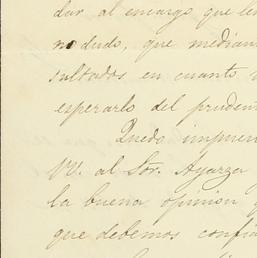 dar al encargo que le
no dudo, que median
sultados en cuanto
esperarlo del pruden
Queda impues
W. al Sor. Ayarza
la buena opinion
que debemos confia